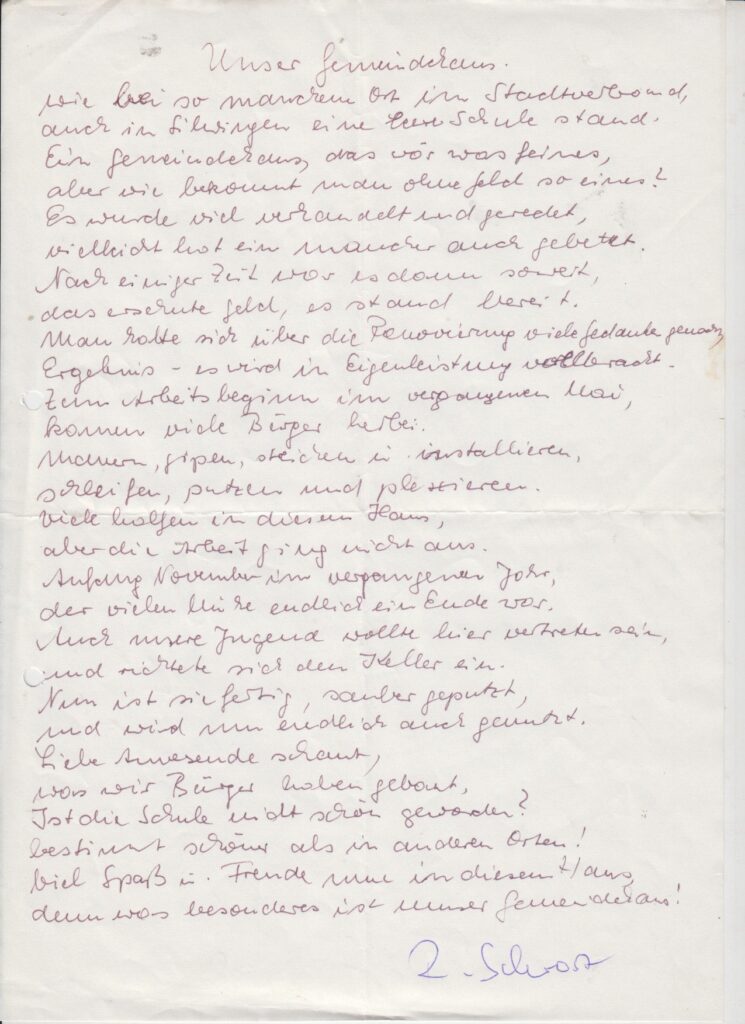 Unser Gemeindehaus.
wie bei so manchem Ort im Stadtverband,
auch in Silwingen eine leere Schule stand.
Ein Gemeindehaus, das wär was feines,
aber wie bekommt man ohne Geld so eines?
Es wurde viel verhandelt und geredet,
vielleicht hat ein mancher auch gebetet.
Nach einiger Zeit war es dann soweit,
das ersehnte Geld, es stand bereit.
Man hatte sich über die Renovierung viele Gedanken gemacht,
Ergebnis - es wird in Eigenleistung vollbracht.
Zum Arbeitsbeginn im vergangenen Mai,
kamen viele Bürger herbei.
Mauern, gipsen, streichen u. installieren,
schleifen, putzen und plassieren.
Viele halfen in diesem Haus,
aber die Arbeit ging nicht aus.
Anfang November im vergangenen Jahr,
der vielen Mühe endlich ein Ende war.
Auch unsere Jugend wollte hier vertreten sein,
und richtete sich den Keller ein.
Nun ist sie fertig, sauber geputzt,
und wird nun endlich auch genutzt.
Liebe Anwesende schaut,
was wir Bürger haben gebaut,
Ist die Schule nicht schön geworden?
bestimmt schöner als in anderen Orten!
Viel Spaß u. Freude nun in diesem Haus,
denn was besonderes ist unser Gemeindehaus!